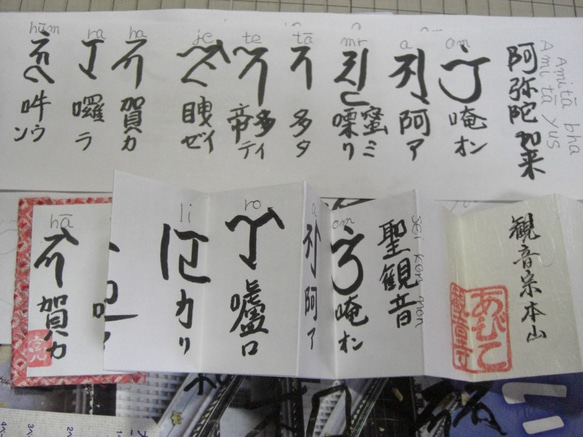 Amitā bha
Ami tā yus
阿弥陀如来
om
唵オン
a
阿ア
mr
蜜ミ
㗚リ
tā
多タ
te
帝テイ
je
ゼイ
ha
賀カ
ra
囉ラ
hūm
吽ウン
観音宗本山
あびて
聖観音
om
唵オン
阿ア
ro
嚧ロ
li
力リ
hā
賀カ